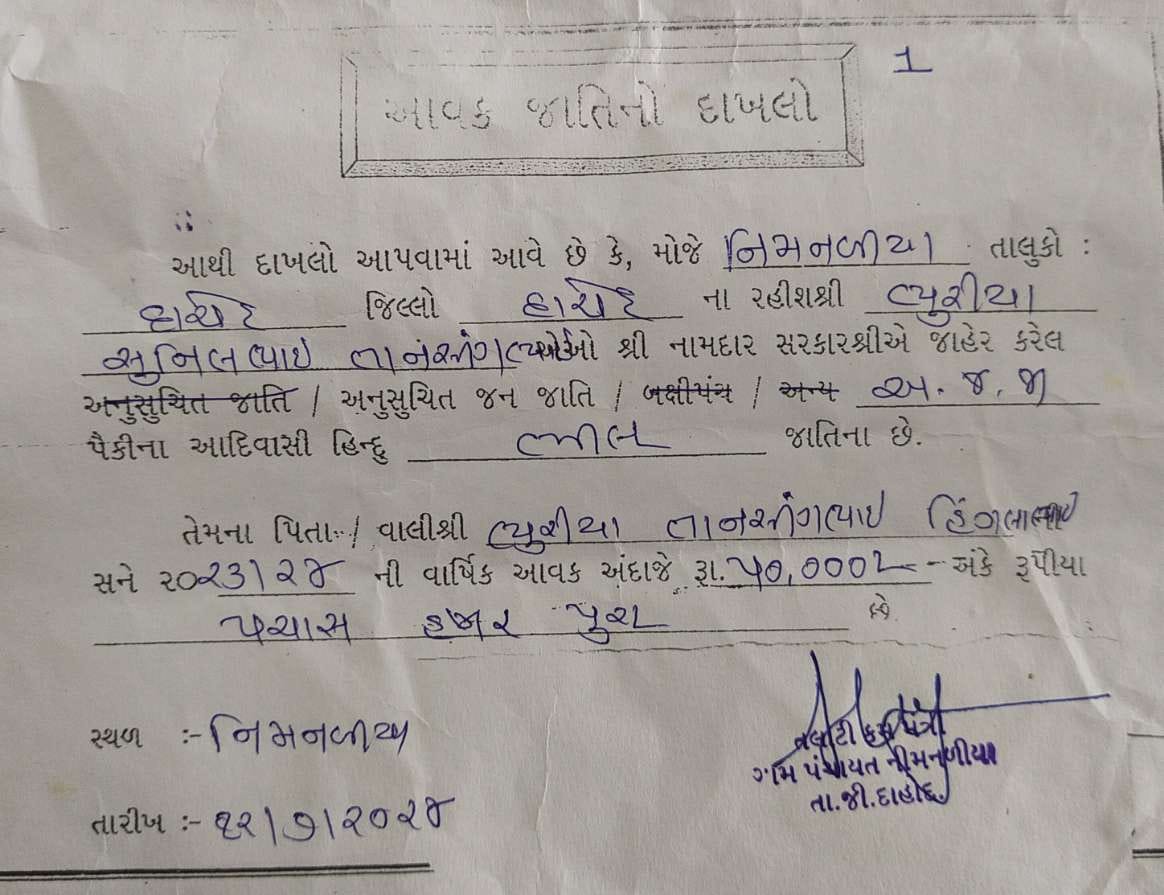 1
આવક જાતિનો દાખલો
આથી દાખલો આપવામાં આવે છે કે, મોજે નિમનળીયા તાલુકો :
દાહોદ જિલ્લો દાહોદ ના રહીશશ્રી ભુરીયા
સુનિલભાઇ તાનસીંગભાઇ ઓ શ્રી નામદાર સરકારશ્રીએ જાહેર કરેલ
અનુસુચિત જાતિ / અનુસુચિત જન જાતિ / બક્ષીપંચ / અન્ય અ. જ. જા
પૈકીના આદિવાસી હિન્દુ ભીલ જાતિના છે.
તેમના પિતા / વાલીશ્રી ભુરીયા તાનસીંગભાઇ
સને ૨૦૨૩।૨૪ ની વાર્ષિક આવક અંદાજે રૂા. ૫૦,૦૦૦/- અંકે રૂપીયા
પચાસ હજાર પુરા છે.
સ્થળ :- નિમનળીયા
તલાટી કમ મંત્રી
ગ્રામ પંચાયત નીમનળીયા
તા.જી.દાહોદ
તારીખ :- ૧૨।૭।૨૦૨૪